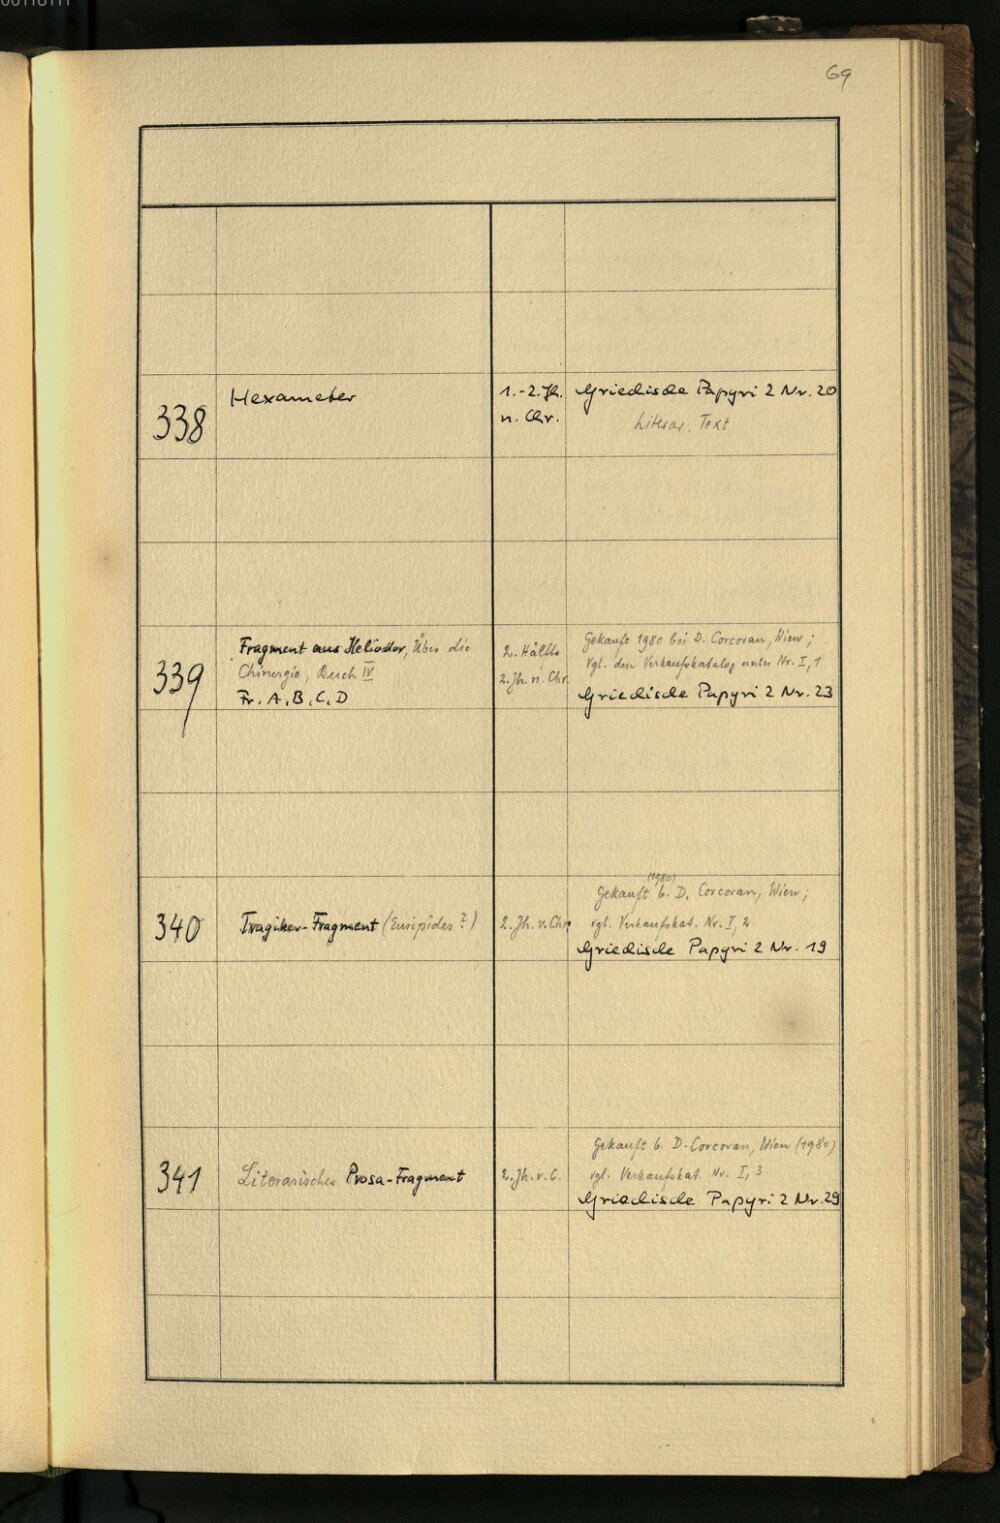 69
338
Hexameter
1.-2. Jh.
n. Chr.
Griechische Papyri 2 Nr. 20
Literar. Text
339
Fragment aus Heliodor, Über die
Chirurgie, Buch IV
Fr. A, B, C, D
2. Hälfte
2. Jh. n. Chr.
Gekauft 1980 bei D. Corcoran, Wien;
vgl. den Verkaufskatalog unter Nr. I, 1
Griechische Papyri 2 Nr. 23
340
Tragiker-Fragment (Euripides?)
2. Jh. v. Chr.
(1980)
Gekauft b. D. Corcoran, Wien;
vgl. Verkaufskat. Nr. I, 2
Griechische Papyri 2 Nr. 19
341
Literarisches Prosa-Fragment
2. Jh. v. C.
Gekauft b. D. Corcoran, Wien (1980)
vgl. Verkaufskat. Nr. I, 3
Griechische Papyri 2 Nr. 29